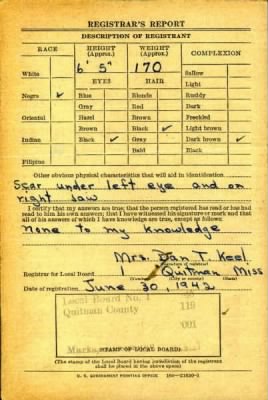 REGISTRAR'S REPORT
DESCRIPTION OF REGISTRANT
RACE HEIGHT (Approx.) WEIGHT (Approx.) COMPLEXION
6' 5" 170
White Sallow
EYES HAIR Light
Negro ✓ Blue Blonde Ruddy
Gray Red Dark
Oriental Hazel Brown Freckled
Brown Black ✓ Light brown
Indian Black ✓ Gray Dark brown ✓
Bald Black
Filipino
Other obvious physical characteristics that will aid in identification
Scar under left eye and on
right Jaw
I certify that my answers are true; that the person registered has read or has had
read to him his own answers; that I have witnessed his signature or mark and that
all of his answers of which I have knowledge are true, except as follows:
None to my knowledge
Mrs. Dan T. Keel
(Signature of registrar)
Registrar for Local Board 1 Quitman Miss
(Number) (City or county) (State)
Date of registration June 30, 1942
Local Board No. 1
Quitman County 119
001
Marks,
(STAMP OF LOCAL BOARD)
(The stamp of the Local Board having jurisdiction of the registrant
shall be placed in the above space)
U. S. GOVERNMENT PRINTING OFFICE 16—21630-1